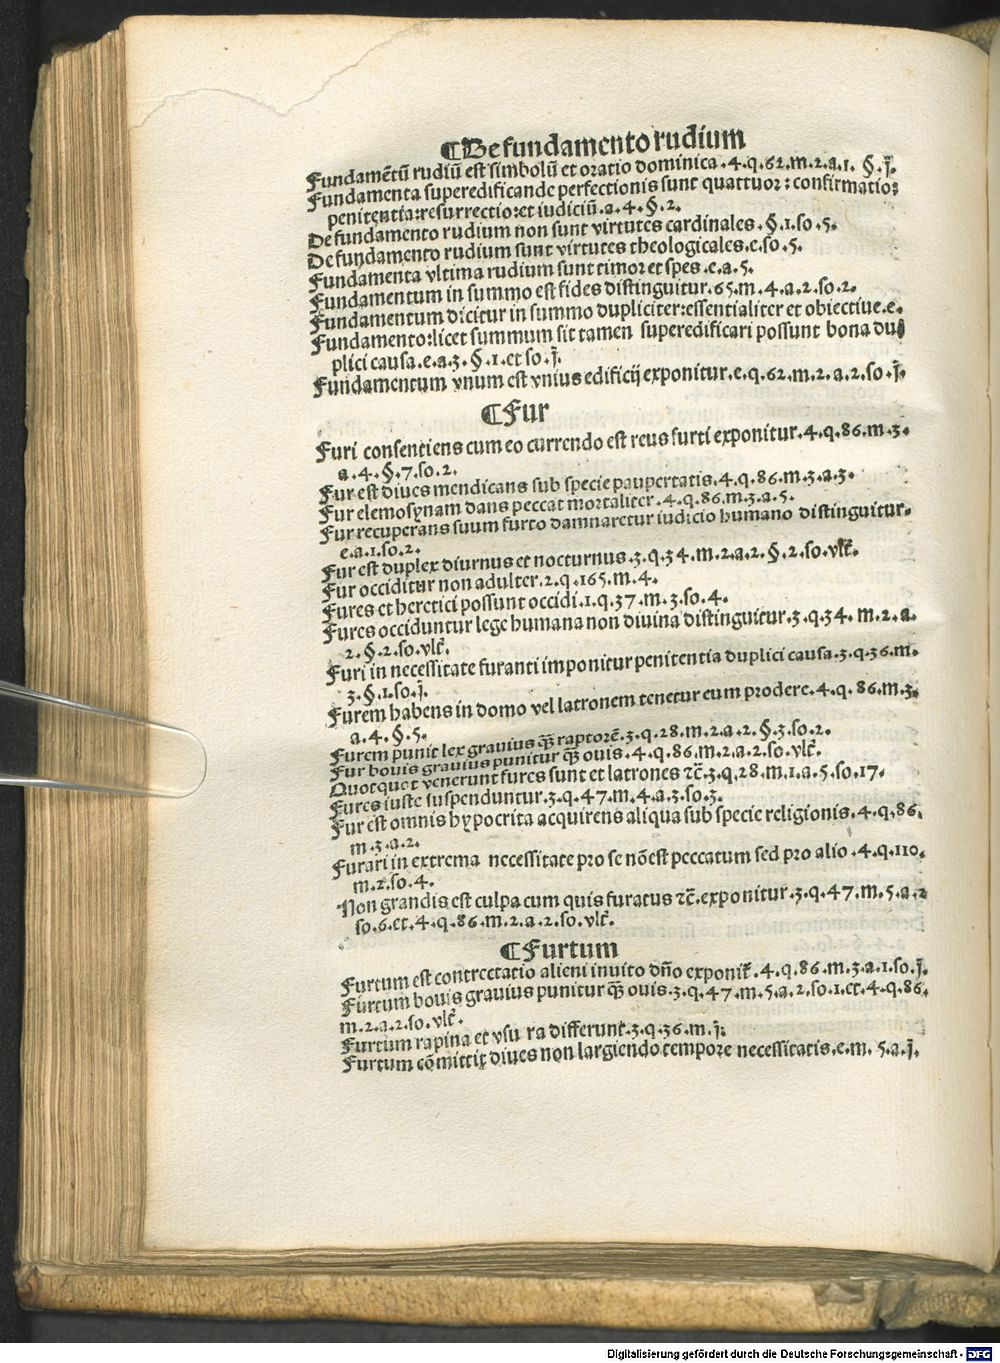 ¶De fundamento rudium
Fundamētū rudiū est simbolū et oratio dominica.4.q.62.m.2.a.1. §.j̄.
Fundamenta superedificande perfectionis sunt quattuor: confirmatio:
penitentia:resurrectio:et iudiciū.a.4.§.2.
De fundamento rudium non sunt virtutes cardinales.§.1.so.5.
De fundamento rudium sunt virtutes theologicales.e.so.5.
Fundamenta vltima rudium sunt timor et spes.e.a.5.
Fundamentum in summo est fides distinguitur.65.m.4.a.2.so.2.
Fundamentum dicitur in summo dupliciter:essentialiter et obiectiue.e.
Fundamento:licet summum sit tamen superedificari possunt bona du
plici causa.e.a.3.§.1.et so.j̄.
Fundamentum vnum est vnius edificij exponitur.e.q.62.m.2.a.2.so.j̄.
¶Fur
Furi consentiens cum eo currendo est reus furti exponitur.4.q.86.m.3.
a.4.§.7.so.2.
Fur est diues mendicans sub specie paupertatis.4.q.86.m.3.a.3.
Fur elemosynam dans peccat mortaliter.4.q.86.m.3.a.5.
Fur recuperans suum furto damnaretur iudicio humano distinguitur.
e.a.1.so.2.
Fur est duplex diurnus et nocturnus.3.q.34.m.2.a.2.§.2.so.vlt̄.
Fur occiditur non adulter.2.q.165.m.4.
Fures et heretici possunt occidi.1.q.37.m.3.so.4.
Fures occiduntur lege humana non diuina distinguitur.3.q.34.m.2.a.
2.§.2.so.vlt̄.
Furi in necessitate furanti imponitur penitentia duplici causa.3.q.36.m.
3.§.1.so.j̄.
Furem habens in domo vel latronem tenetur eum prodere.4.q.86.m.3.
a.4.§.5.
Furem punit lex grauius q̄ȝ raptorē.3.q.28.m.2.a.2.§.3.so.2.
Fur bouis grauius punitur q̄ȝ ouis.4.q.86.m.2.a.2.so.vlt̄.
Quotquot venerunt fures sunt et latrones ⁊c̄.3.q.28.m.1.a.5.so.17.
Fures iuste suspenduntur.3.q.47.m.4.a.3.so.3.
Fur est omnis hypocrita acquirens aliqua sub specie religionis.4.q.86.
m.3.a.2.
Furari in extrema necessitate pro se nōest peccatum sed pro alio.4.q.110.
m.2.so.4.
Non grandis est culpa cum quis furatus ⁊c̄.exponitur.3.q.47.m.5.a.2
so.6.et.4.q.86.m.2.a.2.so.vlt̄.
¶Furtum
Furtum est contrectatio alieni inuito dño exponit̄.4.q.86.m.3.a.1.so.j̄.
Furtum bouis grauius punitur q̄ȝ ouis.3.q.47.m.5.a.2.so.1.et.4.q.86.
m.2.a.2.so.vlt̄.
Furtum rapina et vsu ra differunt.3.q.36.m.j̄:
Furtum cōmittit diues non largiendo tempore necessitatis.e.m.5.a.j̄.
Digitalisierung gefördert durch die Deutsche Forschungsgemeinschaft - DFG